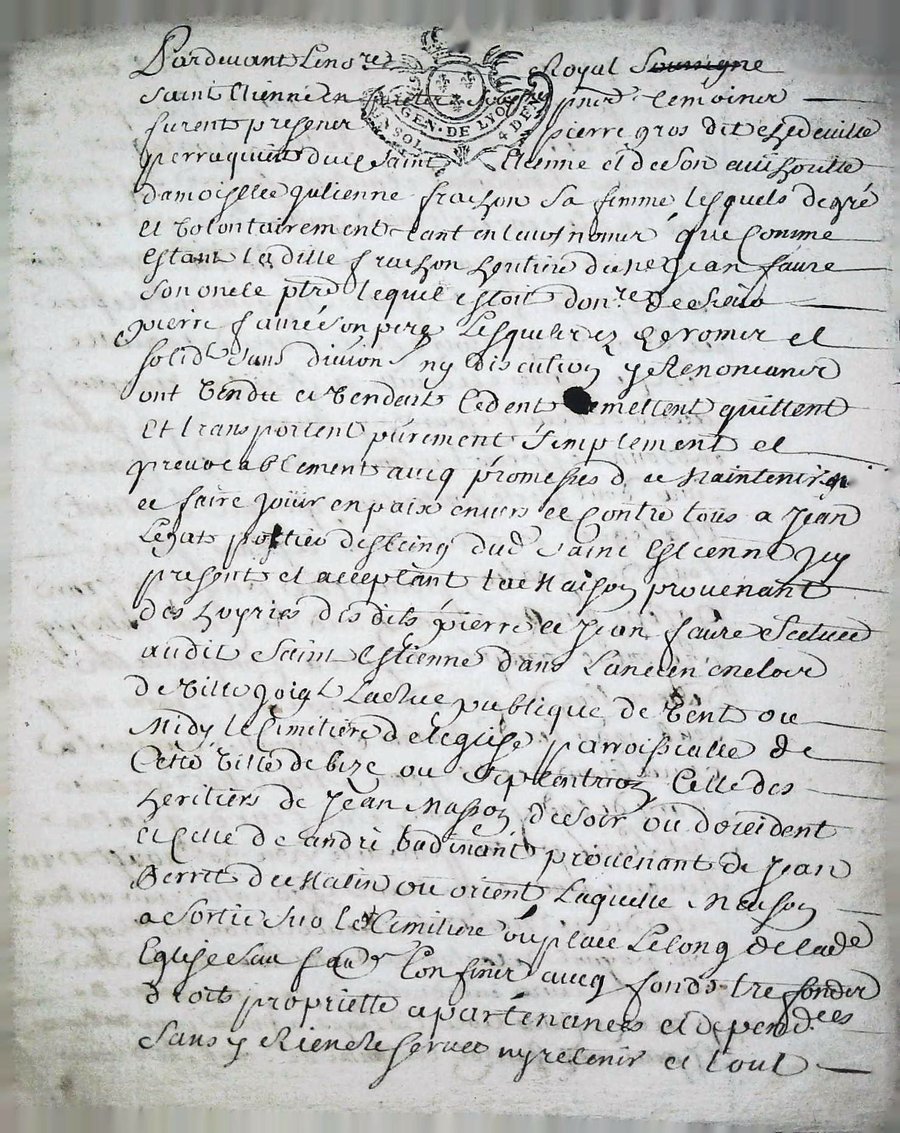 Pardevant le no.re Royal Soussigne
Saint Etienne en presence temoiner
furent presener pierre gros dit
perruquier du Saint Etienne et de son authorite
damoiselle Julienne fraison sa femme lesquels de gré
et volontairement tant en leurs nomer que Comme
estant la ditte fraison heritiere de Jean faure
son oncle ptre lequel estoit don.re de
pierre faure son pere Lesquels et
solid. sans division ny discution y Renoncaner
ont vendu et vendent Cedent Remettent quittent
Et transportent purement Simplement et
yrevocablement avecq promesses de Maintenir
et faire jouir en paix envers et Contre tous a Jean
de Saint Estienne Icy
present et acceptant la Maison provenant
des hoyries desdits pierre et Jean faure scituee
audit Saint Estienne dans Lancien encloz
de ville joigt La Rue publique de vent ou
Midy le Cimitiere de leglise parroissialle de
Cette ville de bize ou Septentrion Celle des
heritiers de Jean Masson de soir ou docident
et Celle de andré badinand provenant de Jean
de Matin ou orient Laquelle Maison
a sortie sur le Cimitiere ou place Lelong de lade
Eglise Confiner avecq fonds tres fonder
droits proprietté apartenances et dependces
Sans y Rien Reserver ny retenir et tout
GEN. DE LYON
4 DEN
SOL